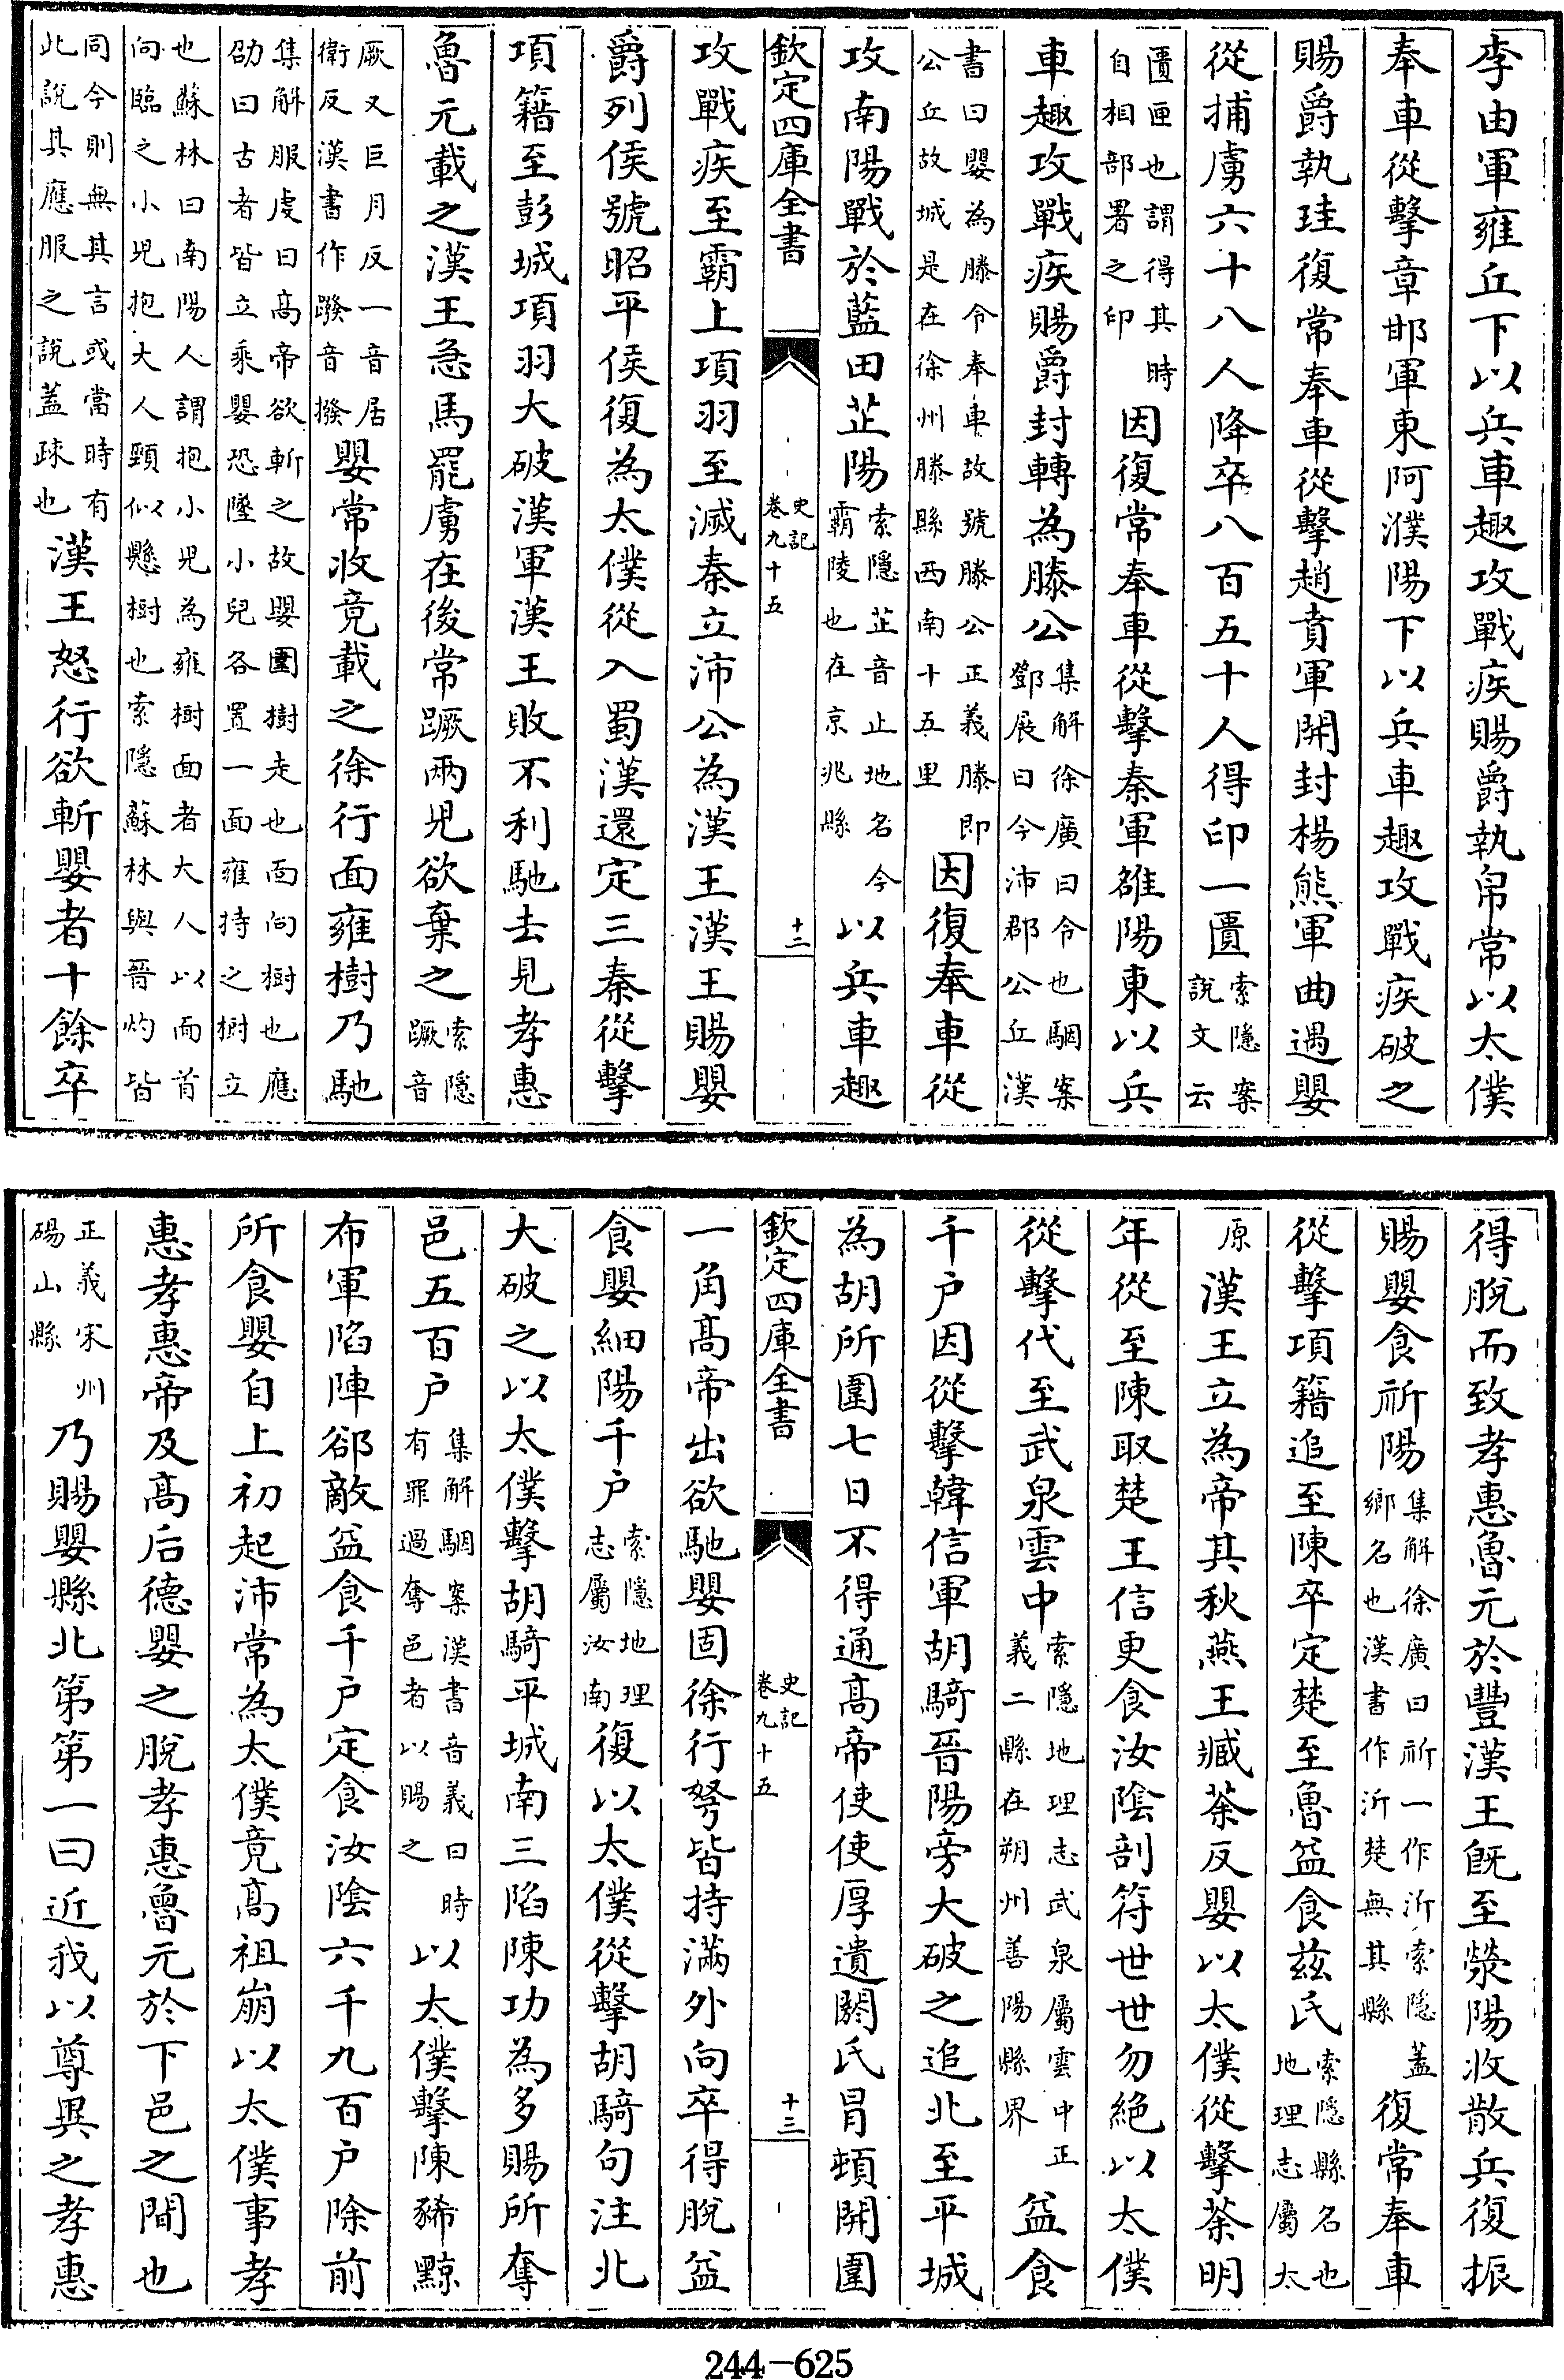 李由軍雍丘下以兵車趣攻戰疾賜爵執帛常以太僕
奉車從擊章邯軍東阿濮陽下以兵車趣攻戰疾破之
賜爵執珪復常奉車從擊趙賁軍開封楊熊軍曲遇嬰
從捕虜六十八人降卒八百五十人得印一匱索隱案說文云
匱匣也謂得其時自相部署之印因復常奉車從擊秦軍雒陽東以兵
車趣攻戰疾賜爵封轉為滕公集解徐廣曰令也駰案鄧展曰今沛郡公丘漢
書曰嬰為滕令奉車故號滕公正義滕即公丘故城是在徐州滕縣西南十五里因復奉車從
攻南陽戰於藍田芷陽索隱芷音止地名今霸陵也在京兆縣以兵車趣
欽定四庫全書 史記卷九十五 十二
攻戰疾至霸上項羽至滅秦立沛公為漢王漢王賜嬰
爵列侯號昭平侯復為太僕從入蜀漢還定三秦從擊
項籍至彭城項羽大破漢軍漢王敗不利馳去見孝惠
魯元載之漢王急馬罷虜在後常蹶兩兒欲棄之索隱蹶音
厥又巨月反一音居衛反漢書作蹳音撥嬰常收竟載之徐行面雍樹乃馳
集解服虔曰高帝欲斬之故嬰圍樹走也面向樹也應劭曰古者皆立乘嬰恐墜小兒各置一面雍持之樹立
也蘇林曰南陽人謂抱小兒為雍樹面者大人以面首向臨之小兒抱大人頸似懸樹也索隱蘇林與晉灼皆
同今則無其言或當時有此說其應服之說蓋疎也漢王怒行欲斬嬰者十餘卒
得脫而致孝惠魯元於豐漢王既至滎陽收散兵復振
賜嬰食祈陽集解徐廣曰祈一作沂索隱蓋鄉名也漢書作沂楚無其縣復常奉車
從擊項籍追至陳卒定楚至魯益食茲氏索隱縣名也地理志屬太
原漢王立為帝其秋燕王臧荼反嬰以太僕從擊荼明
年從至陳取楚王信更食汝陰剖符世世勿絕以太僕
從擊代至武泉雲中索隱地理志武泉屬雲中正義二縣在朔州善陽縣界益食
千戶因從擊韓信軍胡騎晉陽旁大破之追北至平城
為胡所圍七日不得通高帝使使厚遺閼氏冒頓開圍
欽定四庫全書 史記卷九十五 十三
一角高帝出欲馳嬰固徐行弩皆持滿外向卒得脫益
食嬰細陽千戶索隱地理志屬汝南復以太僕從擊胡騎句注北
大破之以太僕擊胡騎平城南三陷陳功為多賜所奪
邑五百戶集解駰案漢書音義曰時有罪過奪邑者以賜之以太僕擊陳豨黥
布軍陷陣郤敵益食千戶定食汝陰六千九百戶除前
所食嬰自上初起沛常為太僕竟高祖崩以太僕事孝
惠孝惠帝及高后德嬰之脫孝惠魯元於下邑之間也
正義宋州碭山縣乃賜嬰縣北第第一曰近我以尊異之孝惠
244-625